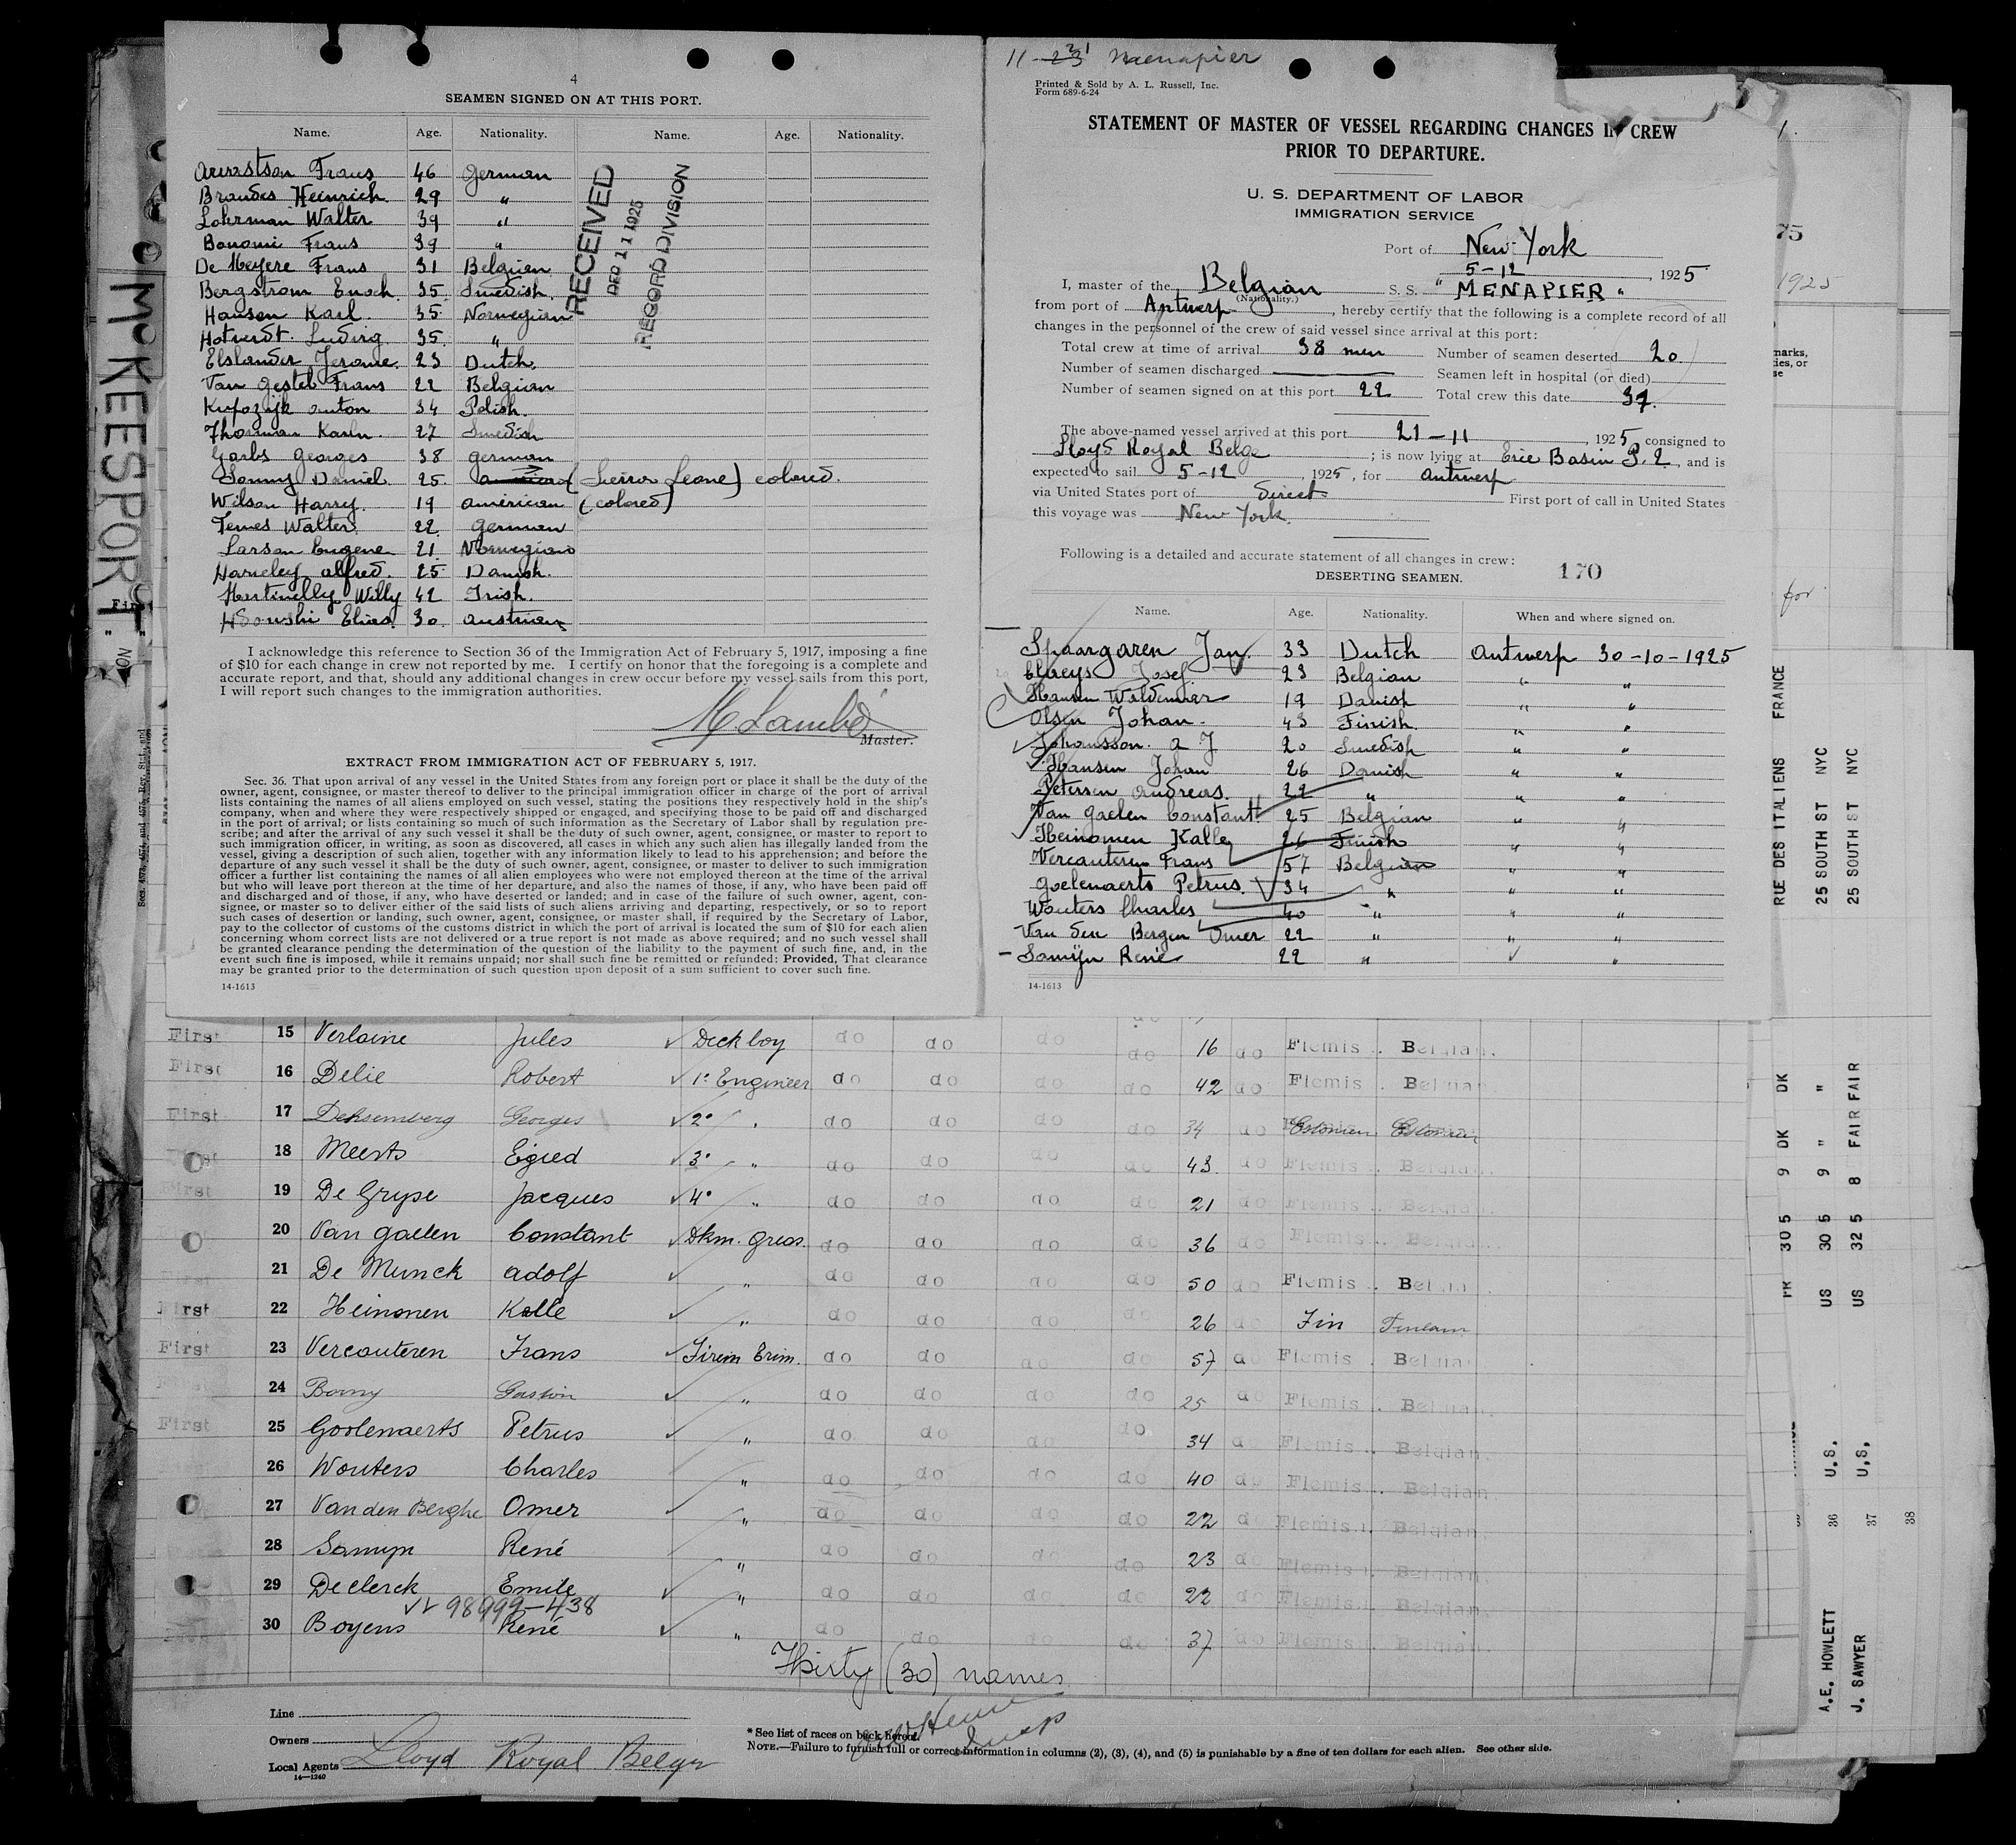 4
SEAMEN SIGNED ON AT THIS PORT.
Name. Age. Nationality. Name. Age. Nationality.
Frans 46 German
Brandes Heinrich. 29 "
Lohrman Walter 39 "
Bonomi Frans 39 "
De Meyere Frans 31 Belgian
Bergstrom Enoch 35 Swedish.
Hansen Karl 35 Norwegian
Hotverdt. Ludvig 35. "
Elslander Jerome. 23 Dutch.
Van Gestel Frans 22 Belgian
Anton 34 Polish.
Thorman Karln. 27 Swedish
Garbs Georges 38 German
Sonny Daniel 25. (Sierra Leone) colored.
Wilson Harry. 19 American (colored)
Temes Walter 22 German
Larson Eugene 21. Norwegian
Harneley Alfred. 25 Danish.
Willy 42 Irish.
Elias 30 Austrian
RECEIVED
DEC 11 1925
RECORD DIVISION
I acknowledge this reference to Section 36 of the Immigration Act of February 5, 1917, imposing a fine
of $10 for each change in crew not reported by me. I certify on honor that the foregoing is a complete and
accurate report, and that, should any additional changes in crew occur before my vessel sails from this port,
I will report such changes to the immigration authorities.
M. Lambé
Master.
EXTRACT FROM IMMIGRATION ACT OF FEBRUARY 5, 1917.
Sec. 36. That upon arrival of any vessel in the United States from any foreign port or place it shall be the duty of the
owner, agent, consignee, or master thereof to deliver to the principal immigration officer in charge of the port of arrival
lists containing the names of all aliens employed on such vessel, stating the positions they respectively hold in the ship's
company, when and where they were respectively shipped or engaged, and specifying those to be paid off and discharged
in the port of arrival; or lists containing so much of such information as the Secretary of Labor shall by regulation pre-
scribe; and after the arrival of any such vessel it shall be the duty of such owner, agent, consignee, or master to report to
such immigration officer, in writing, as soon as discovered, all cases in which any such alien has illegally landed from the
vessel, giving a description of such alien, together with any information likely to lead to his apprehension; and before the
departure of any such vessel it shall be the duty of such owner, agent, consignee, or master to deliver to such immigration
officer a further list containing the names of all alien employees who were not employed thereon at the time of the arrival
but who will leave port thereon at the time of her departure, and also the names of those, if any, who have been paid off
and discharged and of those, if any, who have deserted or landed; and in case of the failure of such owner, agent, con-
signee, or master so to deliver either of the said lists of such aliens arriving and departing, respectively, or so to report
such cases of desertion or landing, such owner, agent, consignee, or master shall, if required by the Secretary of Labor,
pay to the collector of customs of the customs district in which the port of arrival is located the sum of $10 for each alien
concerning whom correct lists are not delivered or a true report is not made as above required; and no such vessel shall
be granted clearance pending the determination of the question of the liability to the payment of such fine, and, in the
event such fine is imposed, while it remains unpaid; nor shall such fine be remitted or refunded: Provided, That clearance
may be granted prior to the determination of such question upon deposit of a sum sufficient to cover such fine.
14-1613
Printed & Sold by A. L. Russell, Inc.
Form 689-6-24
STATEMENT OF MASTER OF VESSEL REGARDING CHANGES IN CREW
PRIOR TO DEPARTURE.
U. S. DEPARTMENT OF LABOR
IMMIGRATION SERVICE
Port of New York
5-12, 1925
I, master of the Belgian S. S. "MENAPIER"
(Nationality.)
from port of Antwerp, hereby certify that the following is a complete record of all
changes in the personnel of the crew of said vessel since arrival at this port:
Total crew at time of arrival 38 men Number of seamen deserted 20.
Number of seamen discharged Seamen left in hospital (or died)
Number of seamen signed on at this port 22 Total crew this date 37.
The above-named vessel arrived at this port 21-11, 1925 consigned to
Lloyd Royal Belge; is now lying at Erie Basin P. 2, and is
expected to sail 5-12, 1925, for Antwerp
via United States port of direct First port of call in United States
this voyage was New York.
Following is a detailed and accurate statement of all changes in crew:
DESERTING SEAMEN. 170
Name. Age. Nationality. When and where signed on.
Spaargaren Jan. 33 Dutch Antwerp 30-10-1925
Josef. 23 Belgian " "
Hansen Waldemar 19 Danish " "
Olsen Johan. 43 Finish. " "
Johansson. A J 20 Swedish " "
Hansen Johan 26 Danish " "
Petersen Andreas. 22 " " "
Van Gaelen Constant. 25 Belgian " "
Heinomen Kalle 26 Finish " "
Vercauteren Frans 57 Belgian " "
Goelenaerts Petrus. 34 " " "
Wouters Charles 40 " " "
Van den Bergen Omer 22 " " "
Samijn René 22 " " "
14-1613
First 15 Verlaine Jules Deckboy do do do do 16 do Flemis. Belgian.
First 16 Delie Robert 1° Engineer do do do do 42 do Flemis. Belgian
First 17 Georges 2° " do do do do 34 do Estonian Estonian
First 18 Meerts Egied 3° " do do do do 43. do Flemis. Belgian.
First 19 De Gryse Jacques 4° " do do do do 21 do Flemis. Belgian.
20 Van Gaelen Constant Dkm. Greas. do do do do 36 do Flemis. Belgian
First 21 De Munck Adolf " do do do do 50 do Flemis. Belgian
First 22 Heinonen Kalle " do do do do 26 do Fin
First 23 Vercauteren Frans Firem Trim. do do do do 57 do Flemis. Belgian
First 24 Gaston " do do do do 25 do Flemis. Belgian.
First 25 Goolenaerts Petrus " do do do do 34 d Flemis. Belgian.
26 Wouters Charles " do do do do 40 do Flemis. Belgian.
27 Van den Berghe Omer " do do do do 22 do Flemis. Belgian.
28 Samyn René " do do do do 23 do Flemis. Belgian.
29 Declerck Emile " do do do do 22 do Flemis. Belgian.
98999-438
30 Boyens René " do do do do 37 do Flemis. Belgian.
Thirty (30) names
Line
Owners
Local Agents Lloyd Royal Belge
14-1240
* See list of races on back hereof.
NOTE.—Failure to furnish full or correct information in columns (2), (3), (4), and (5) is punishable by a fine of ten dollars for each alien. See other side.
McKEESPORT
RUE DES ITALIENS FRANCE
25 SOUTH ST NYC
25 SOUTH ST NYC
9 DK DK
9 " "
8 FAIR FAIR
30 5
US 30 5
US 32 5
A.E. HOWLETT 36 U.S.
J. SAWYER 37 U.S.
38
75
1925
for